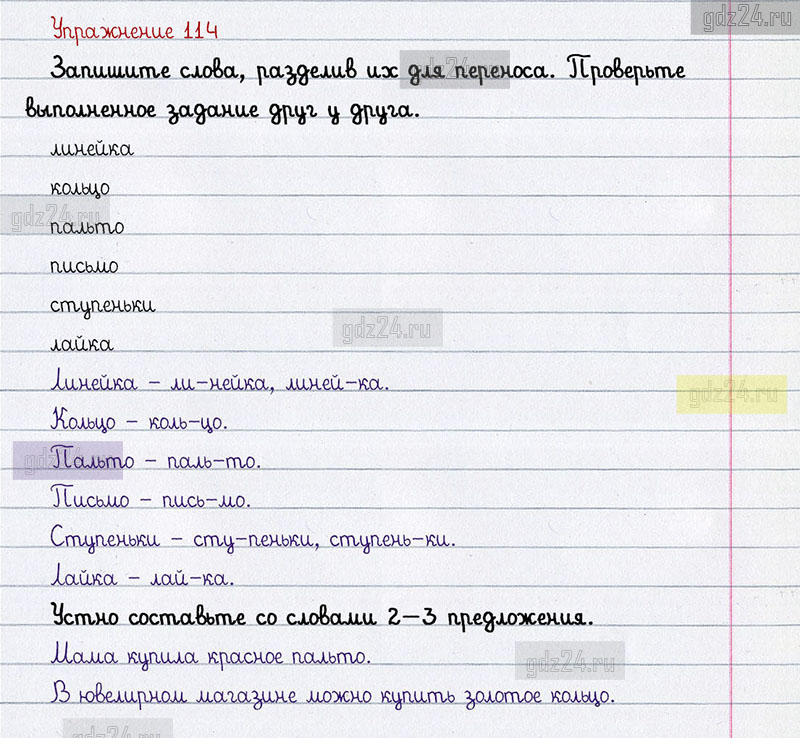 gdz24.ru
Упражнение 114
Запишите слова, разделив их для переноса. Проверьте
gdz24.ru
выполненное задание друг у друга.
линейка
кольцо
gdz24.ru
пальто
письмо
ступеньки
gdz24.ru
лайка
Линейка – ли-нейка, линей-ка.
gdz24.ru
Кольцо – коль-цо.
Пальто – паль-то.
gdz24.ru
Письмо – пись-мо.
Ступеньки – сту-пеньки, ступень-ки.
Лайка – лай-ка.
Устно составьте со словами 2–3 предложения.
Мама купила красное пальто.
gdz24.ru
В ювелирном магазине можно купить золотое кольцо.
gdz24.ru